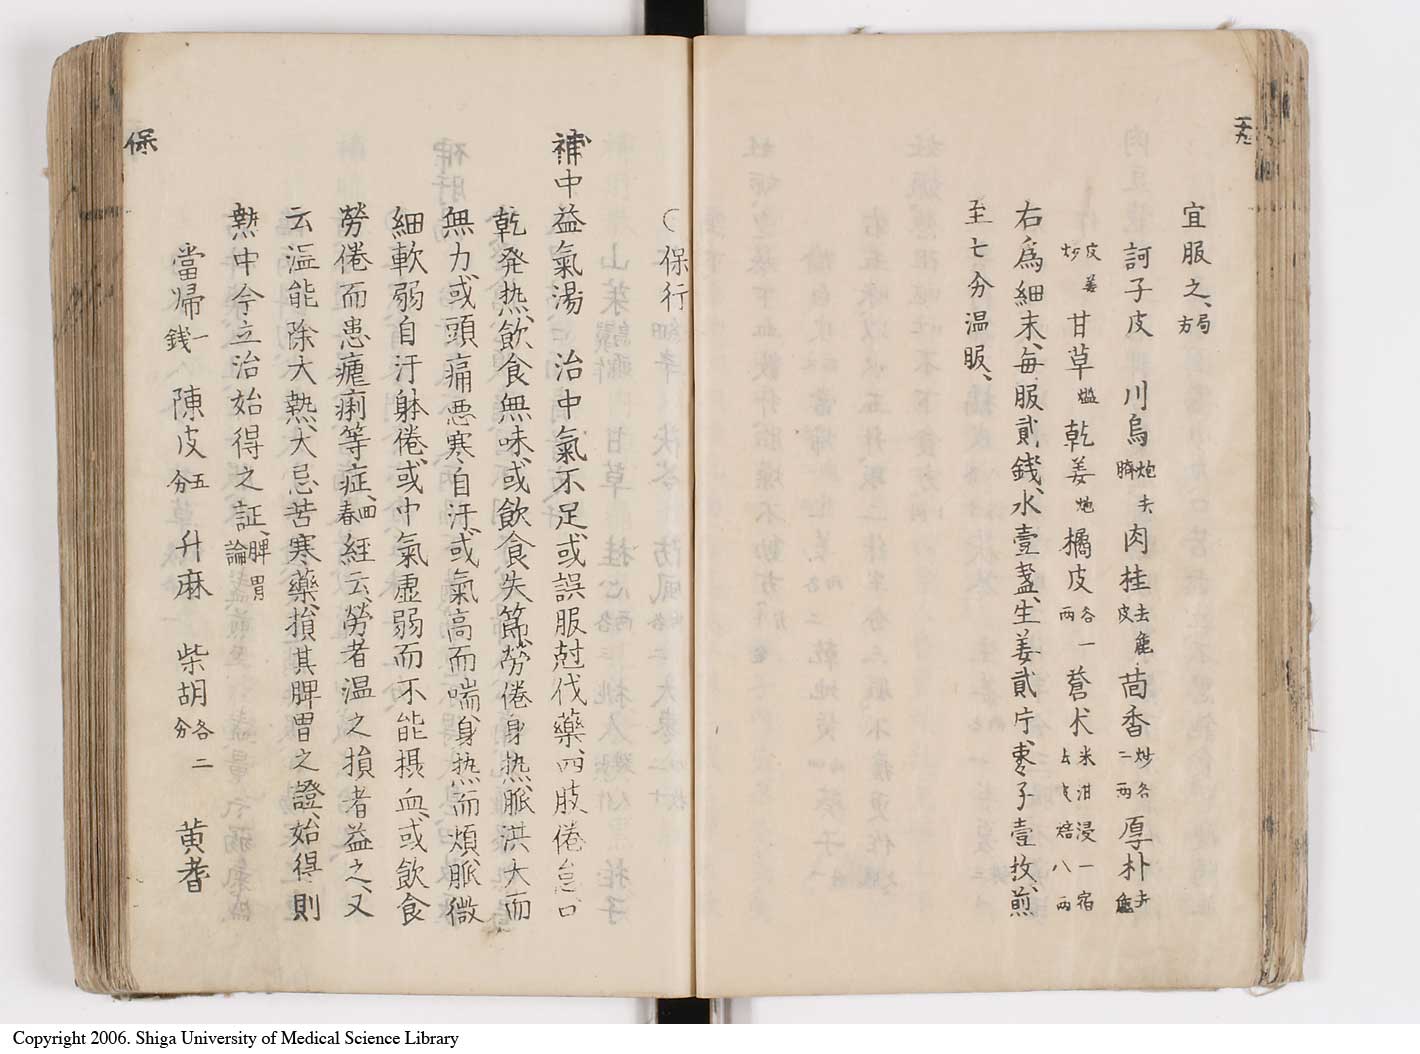 宜服之、局方
訶子皮 川烏炮去臍 肉桂去麁皮 茴香炒各二兩 厚朴去麁
皮姜炒 甘草㷶 乾姜炮 橘皮各一兩 蒼朮米泔浸一宿
焙八兩
右爲細末、毎服貳錢、水壹盞、生姜貳斤、棗子壹枚、煎
至七分温服、
〇保行
補中益氣湯 治中氣不足、或誤服尅伐藥、四肢倦怠、口
乾発热、飲食無味、或飲食失節、勞倦身热、脈洪大而
無力、或頭痛悪寒自汗、或氣高而喘、身热而煩、脈微
細軟弱自汗、躰倦、或中氣虚弱而不能摂血、或飲食
勞倦而患瘧痢等症、回春 経云、勞者温之、損者益之、又
云温能除大熱、大忌苦寒藥、損其脾胃之證、始得則
熱中、今立治始得之証、脾胃論
當帰一錢 陳皮五分 升麻 柴胡各二分 黄耆
保
Copyright 2006. Shiga University of Medical Science Library